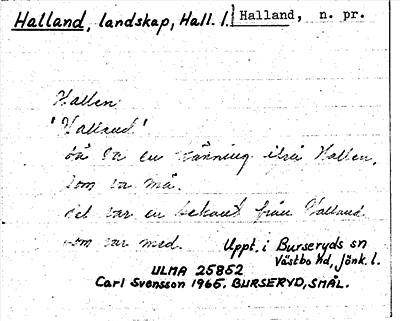 Halland, landskap, Hall. l. Halland, n. pr.
Hallen
'Halland'
då va en känning ifrå Hallen,
som va må.
det var en bekant från Halland
som var med.
Uppt. i Burseryds sn
Västbo hd, Jönk. l.
ULMA 25852
Carl Svensson 1965. BURSERYD, SMÅL.